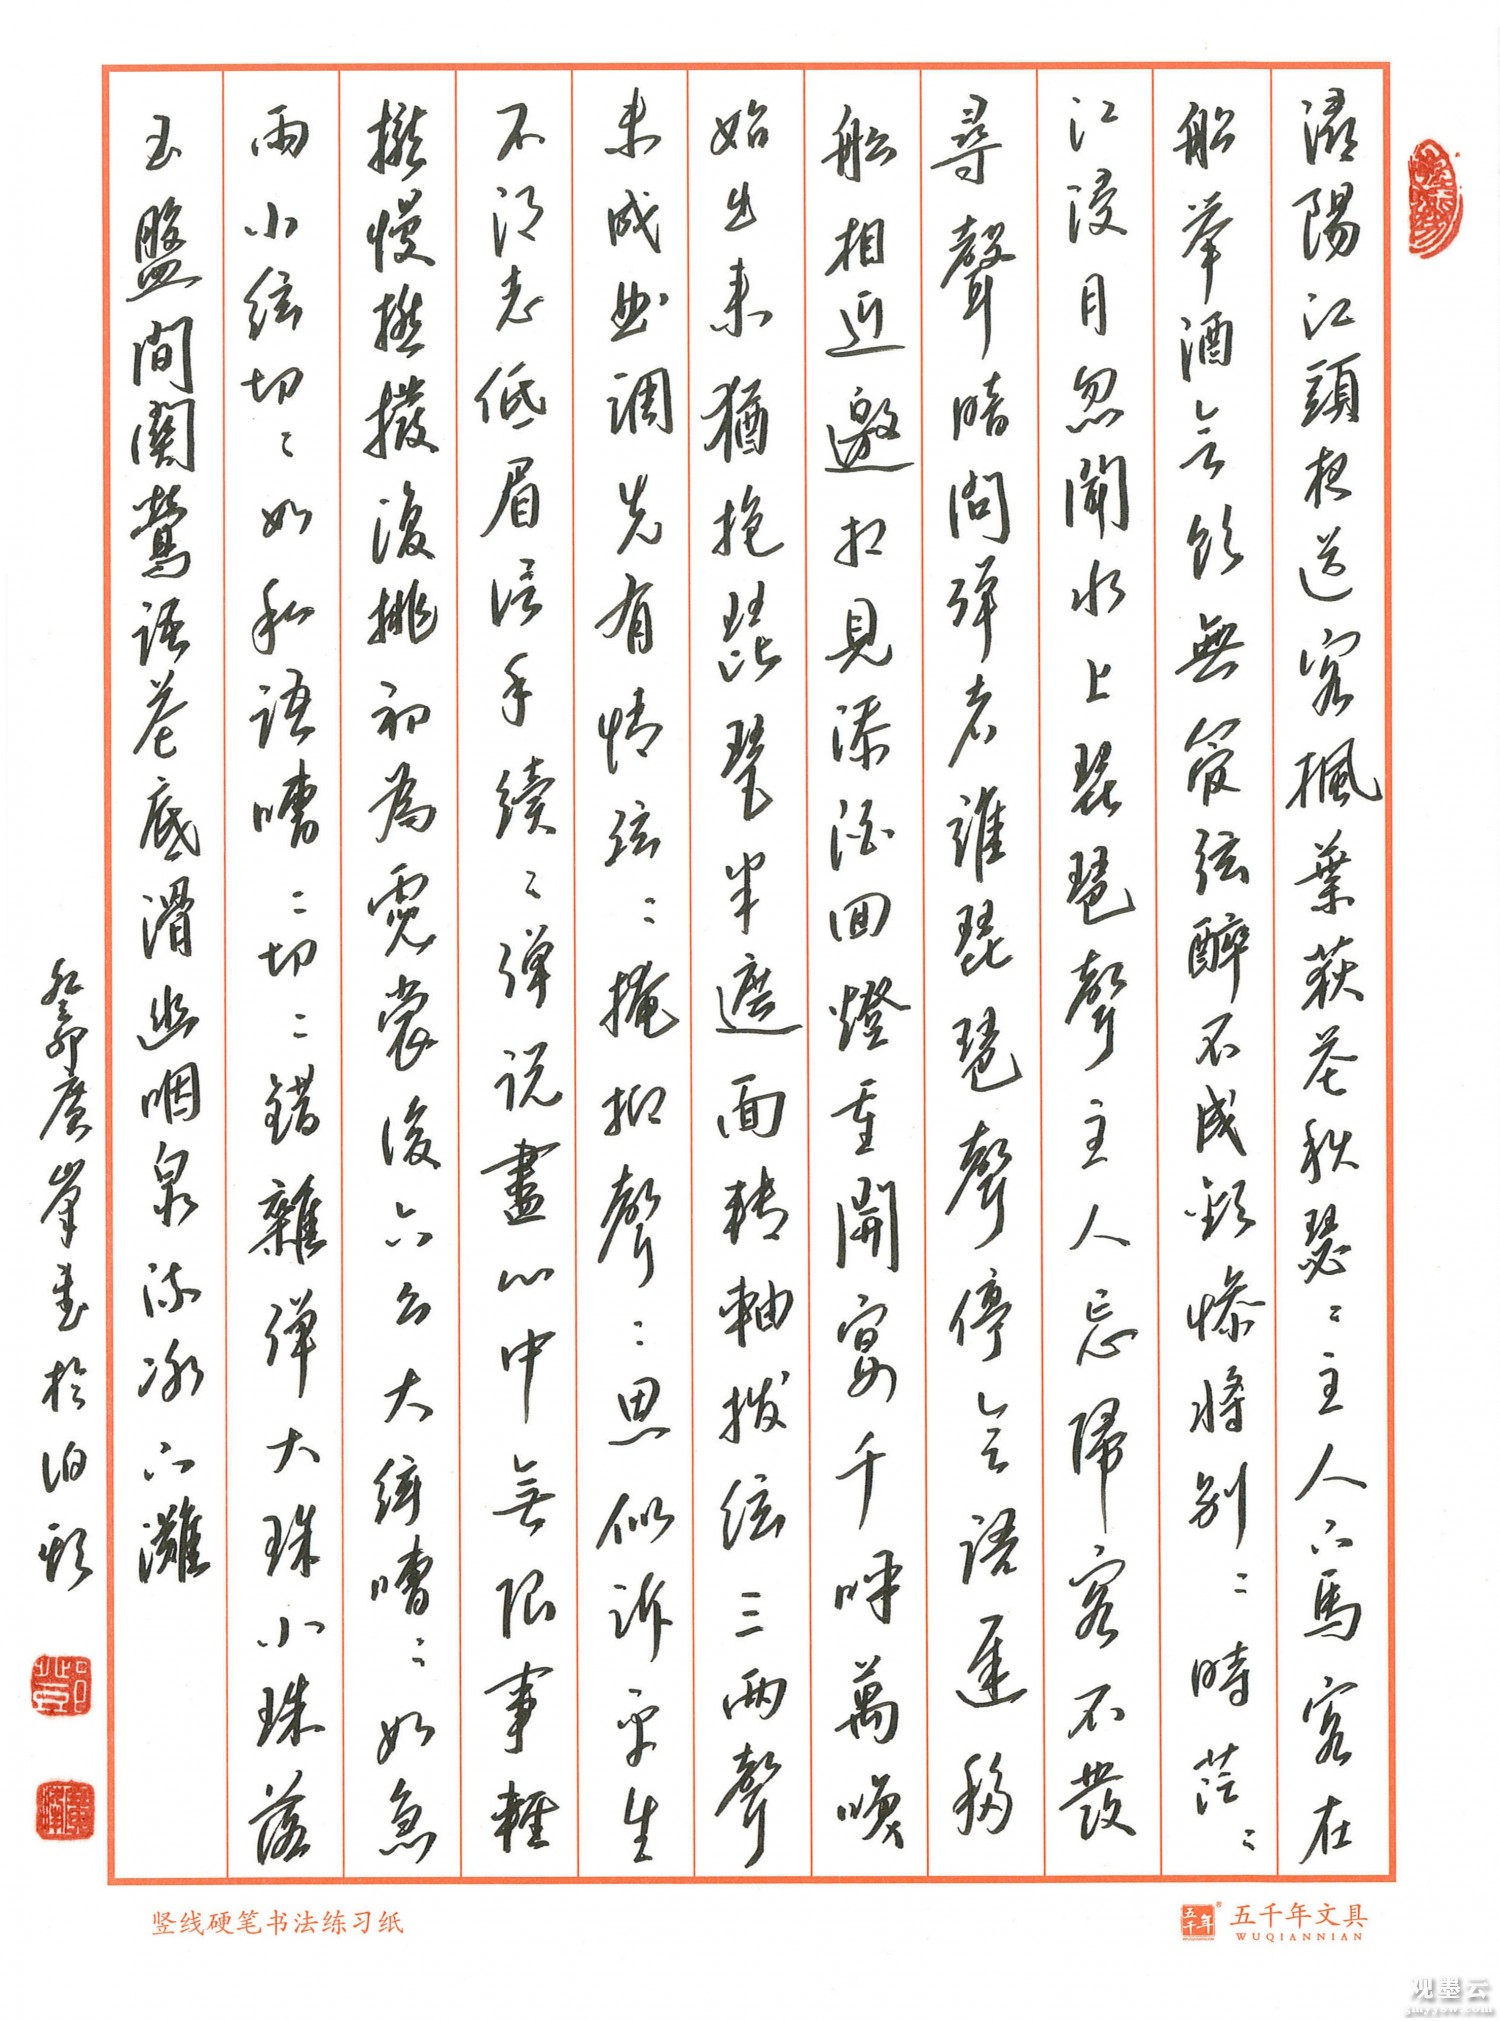 潯陽江頭夜送客楓葉荻花秋瑟〻主人下馬客在
船举酒欲飲無管弦醉不成歡慘將別〻時茫〻
江浸月忽聞水上琵琶聲主人忘歸客不發
尋聲暗問彈者誰琵琶聲停欲語遲移
船相近邀相見添酒回燈重開宴千呼萬喚
始出來猶抱琵琶半遮面轉軸撥弦三兩聲
未成曲調先有情弦〻掩抑聲〻思似訴平生
不得志低眉信手續〻彈說盡心中無限事輕
攏慢撚撥復挑初為霓裳後六幺大弦嘈〻如急
雨小弦切〻如私語嘈〻切〻錯雜彈大珠小珠落
玉盤間關鶯語花底滑幽咽泉流冰下灘
癸卯廣峯書於泊頭
竖线硬笔书法练习纸
五千年
五千年文具
WUQIANNIAN
观墨云
gmyyww.com